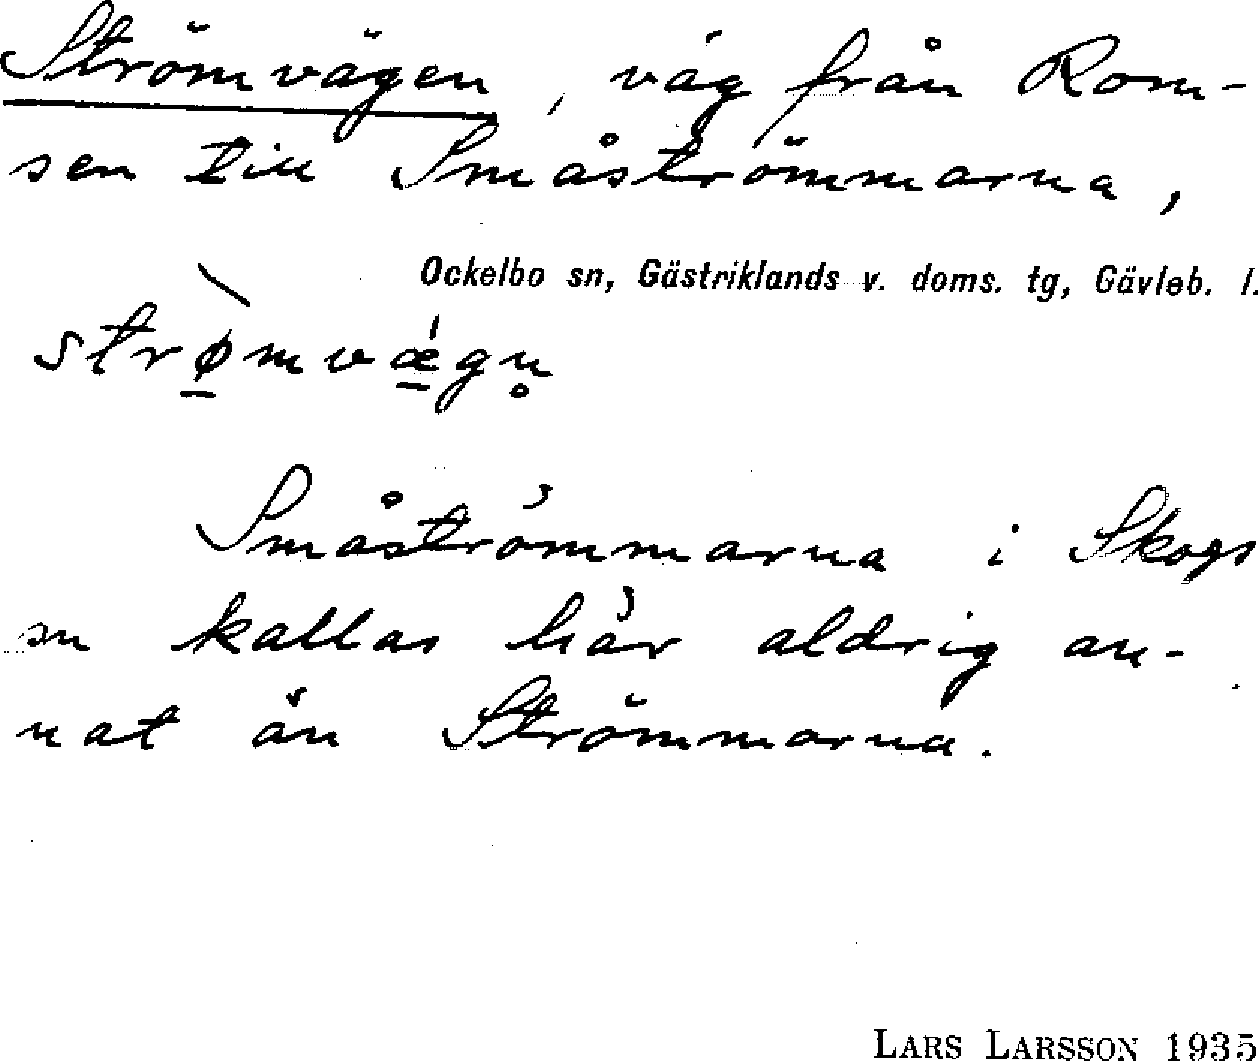 Strömvägen, väg från Rom-
sen till Småströmmarna,
Ockelbo sn, Gästriklands v. doms. tg, Gävleb. l.
strø̀mvǽgn̥
Småströmmarna i Skogs
sn kallas här aldrig an-
nat än Strömmarna.
LARS LARSSON 1935